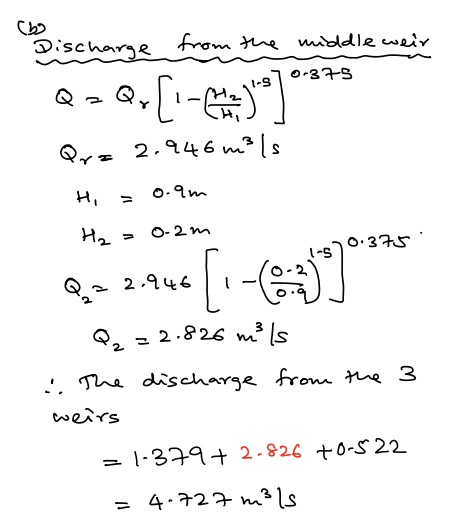 (b)
Discharge from the middle weir
Q = Qr [1-(H2/H1)^1.5]^0.375
Qr = 2.946 m³/s
H1 = 0.9m
H2 = 0.2m
Q2 = 2.946 [1-(0.2/0.9)^1.5]^0.375
Q2 = 2.826 m³/s
∴ The discharge from the 3
weirs
= 1.379 + 2.826 + 0.522
= 4.727 m³/s